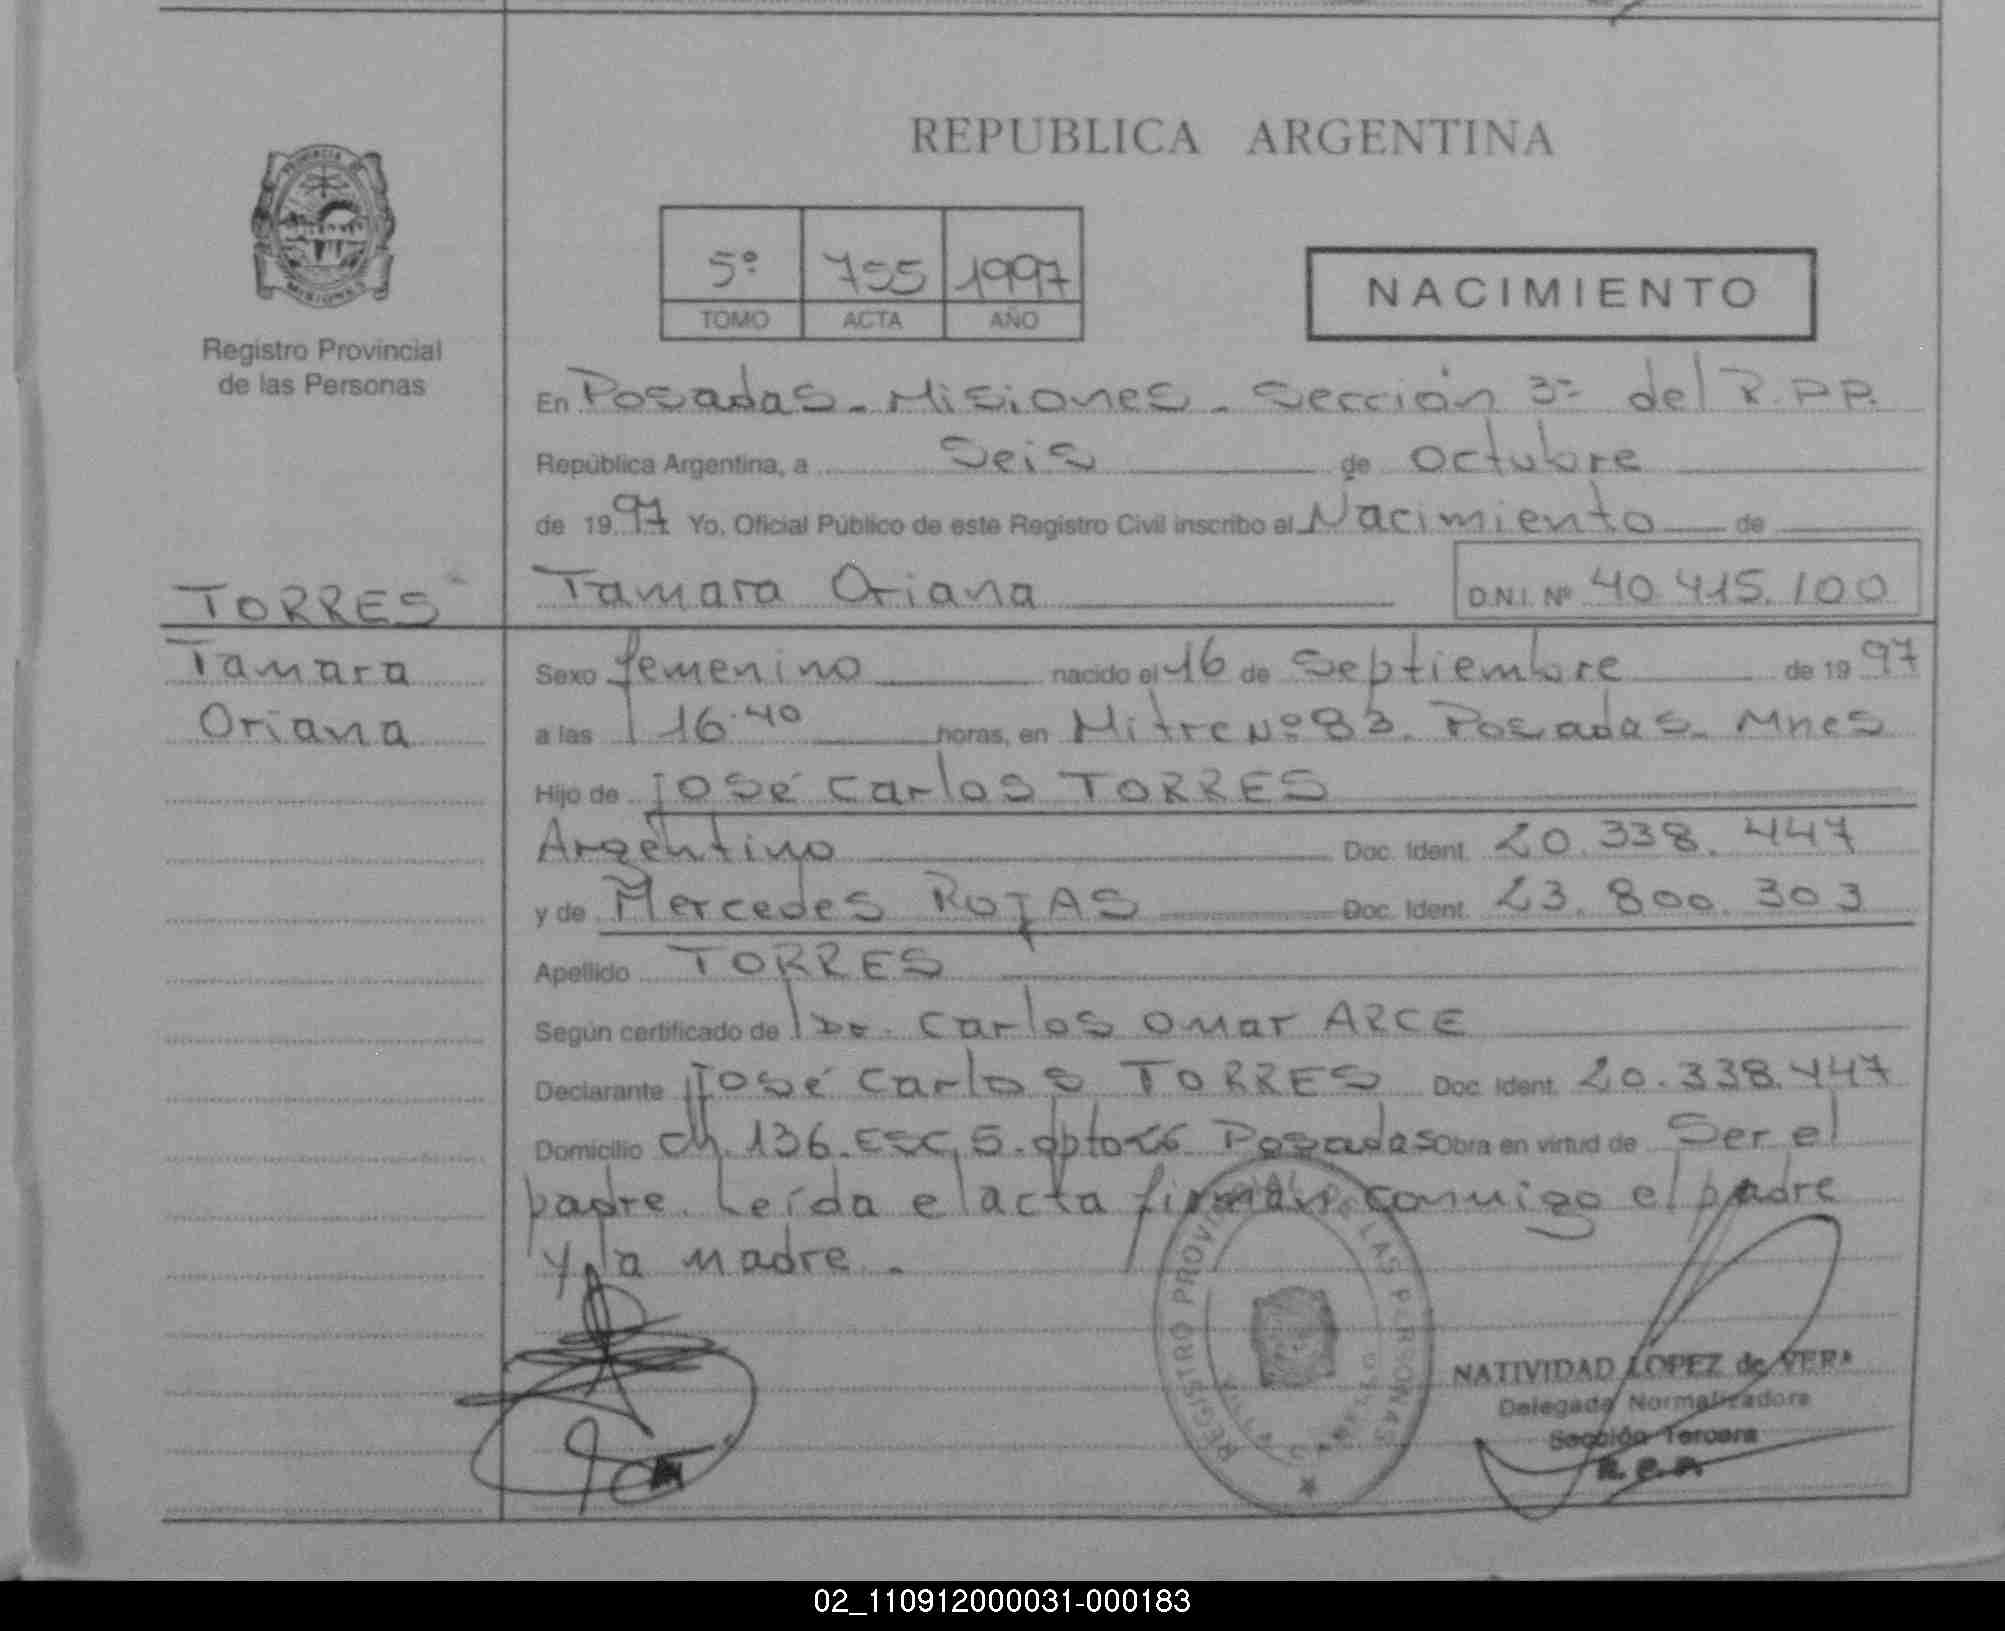 REPUBLICA ARGENTINA
PROVINCIA DE
MISIONES
Registro Provincial
de las Personas
5º 755 1997
TOMO ACTA AÑO
NACIMIENTO
En Posadas - Misiones - Sección 3ª del R.P.P.
República Argentina, a Seis de Octubre
de 1997 Yo, Oficial Público de este Registro Civil inscribo el Nacimiento de
TORRES
Tamara
Oriana
Tamara Oriana D.N.I. Nº 40.415.100
Sexo femenino nacido el 16 de Septiembre de 1997
a las 16.40 horas, en Mitre Nº 83. Posadas - Mnes
Hijo de José Carlos TORRES
Argentino Doc. Ident. 20.338.447
y de Mercedes ROJAS Doc. Ident. 23.800.303
Apellido TORRES
Según certificado de Dr. Carlos Omar ARCE
Declarante José Carlos TORRES Doc. Ident. 20.338.447
Domicilio Ch. 136. Esc. 5. dpto Posadas Obra en virtud de Ser el
padre. Leída el acta firman conmigo el padre
y la madre.
REGISTRO PROVINCIAL DE LAS PERSONAS
NATIVIDAD LOPEZ de VERA
Delegada Normalizadora
Sección Tercera
R.P.P.
02_110912000031-000183